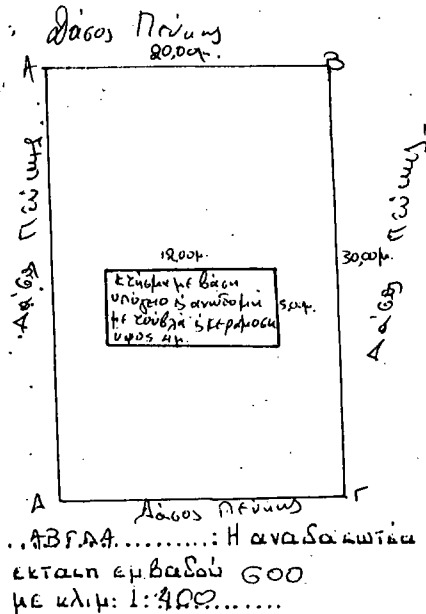 Δάσος Πεύκης
20,00μ.
Α Β
Δάσος Πεύκης
Δάσος Πεύκης
12,00μ.
30,00μ.
Κτίσμα με βάση
υπόγειο & ανωδομή
με τούβλα & κεραμοσκ
υψος 4μ.
5,00μ.
Δ Γ
Δάσος Πεύκης
..ΑΒΓΔΑ..........: Η αναδασωτέα
εκταση εμβαδού 600
με κλιμ: 1:400.........